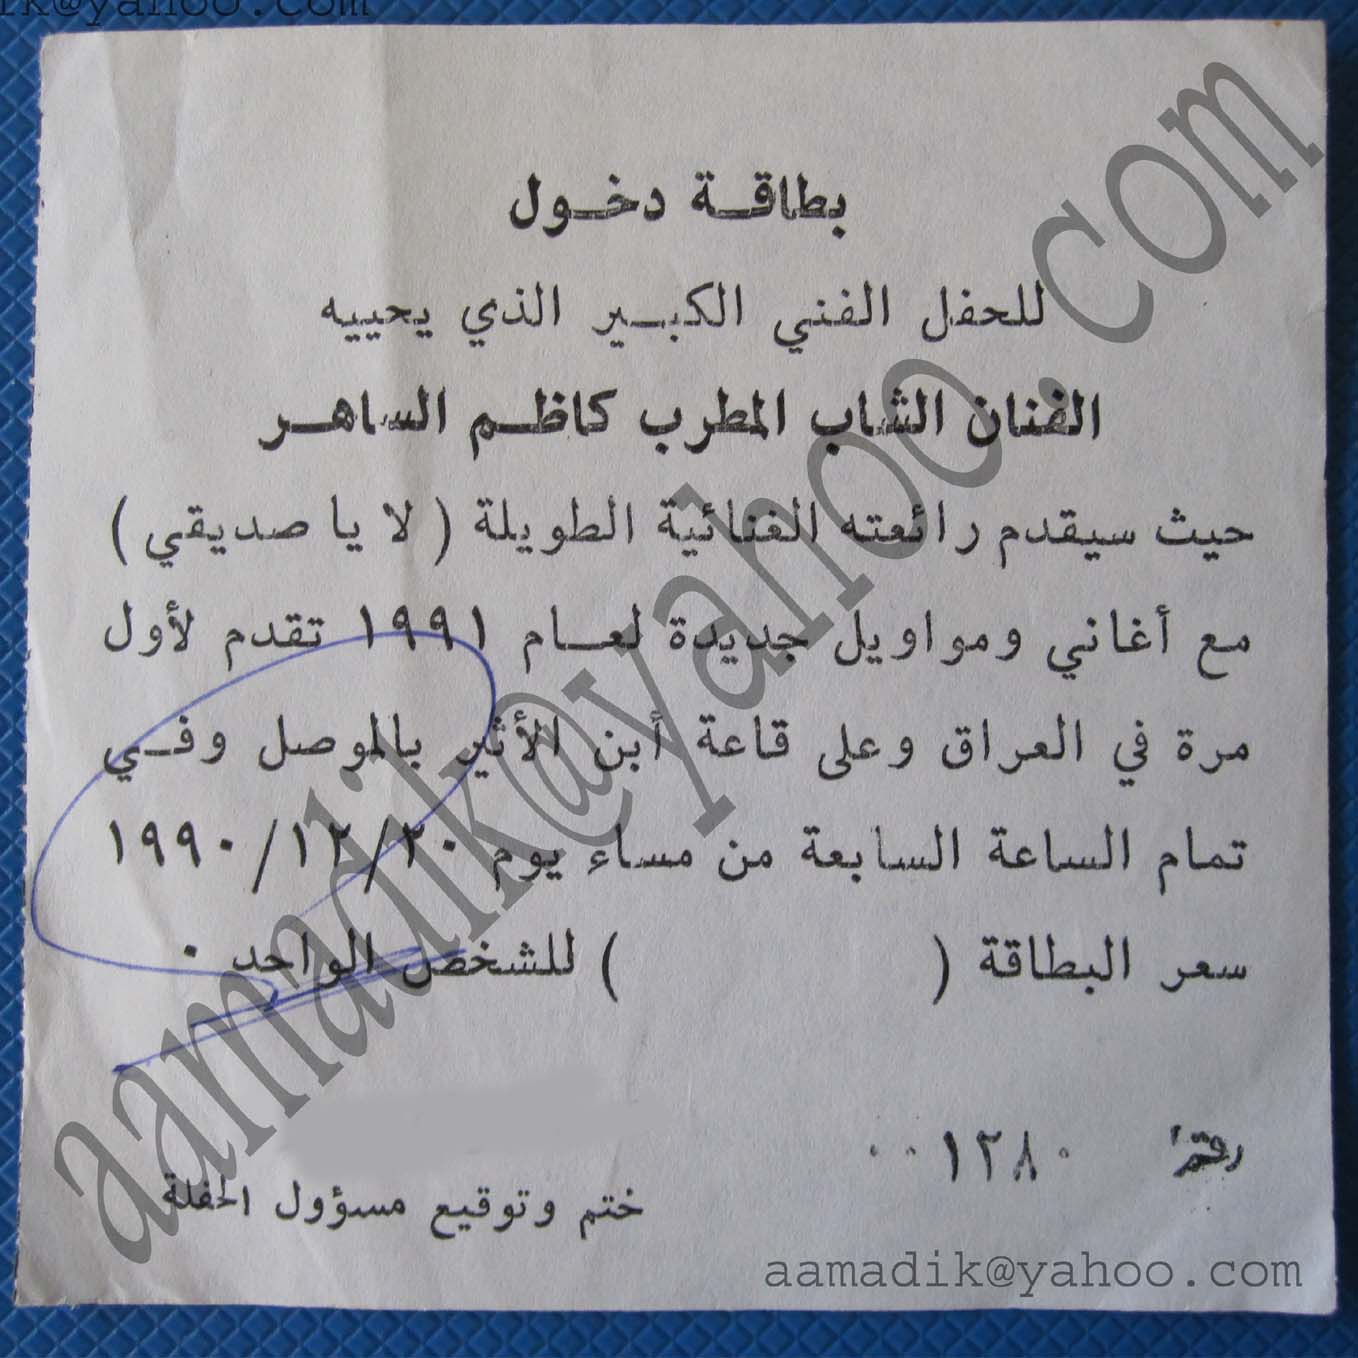 ik@yahoo.com
بطاقة دخول
للحفل الفني الكبير الذي يحييه
الفنان الشاب المطرب كاظم الساهر
حيث سيقدم رائعته الغنائية الطويلة ( لا يا صديقي )
مع أغاني ومواويل جديدة لعام ١٩٩١ تقدم لأول
مرة في العراق وعلى قاعة أبن الأثير بالموصل وفي
تمام الساعة السابعة من مساء يوم ٢٠/١٢/١٩٩٠
سعر البطاقة (                ) للشخص الواحد .
رقم ٠٠١٢٨٠
ختم وتوقيع مسؤول الحفلة
aamadik@yahoo.com
aamadik@yahoo.com